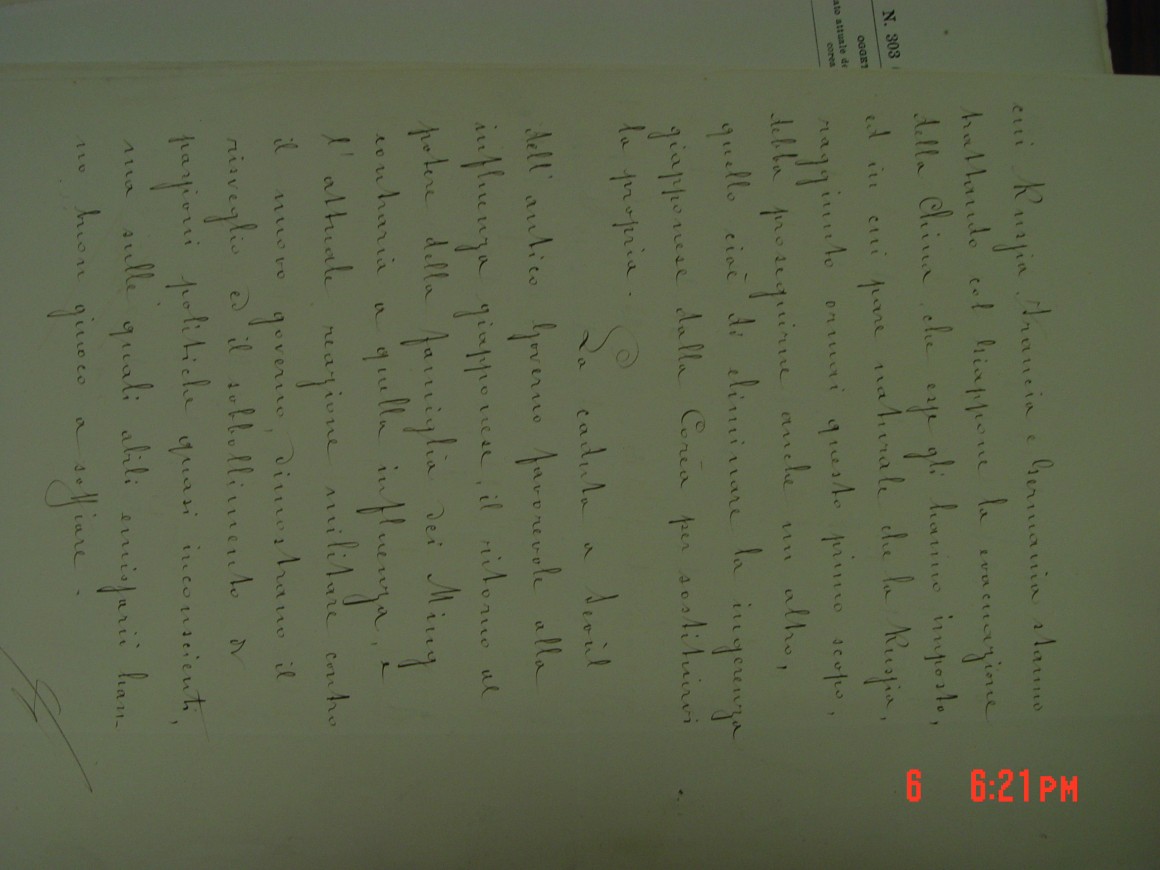 N. 303
OGGET
ato attuale de
corea
cui Russia, Francia e Germania stanno
trattando col Giappone la evacuazione
della China, che esse gli hanno imposto,
ed in cui pare naturale che la Russia,
raggiunto ormai questo primo scopo,
debba proseguirne anche un altro,
quello cioè di eliminare la ingerenza
giapponese dalla Corèa per sostituirvi
la propria.
La caduta a Seoul
dell'antico Governo favorevole alla
influenza giapponese, il ritorno al
potere della famiglia dei Ming
contraria a quella influenza, e
l'attuale reazione militare contro
il nuovo governo, dimostrano il
risveglio ed il sobbollimento di
passioni politiche quasi inconscienti,
ma sulle quali abili emissarii han-
no buon giuoco a soffiare.
6 6:21PM